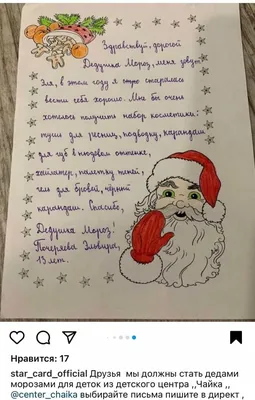 Здравствуй, дорогой
Дедушка Мороз, меня зовут
Эля, в этом году я очень старалась
вести себя хорошо. Мне бы очень
хотелось получить набор косметики:
тушь для ресниц, подводку, карандаш
для губ в нюдовом оттенке,
хайлайтер, палетку теней,
гель для бровей, чёрный
карандаш. Спасибо,
Дедушка Мороз!
Эльвира,
13 лет.
Нравится: 17
star_card_official Друзья мы должны стать дедами
морозами для деток из детского центра ,,Чайка ,,
@center_chaika выбирайте письма пишите в директ ,